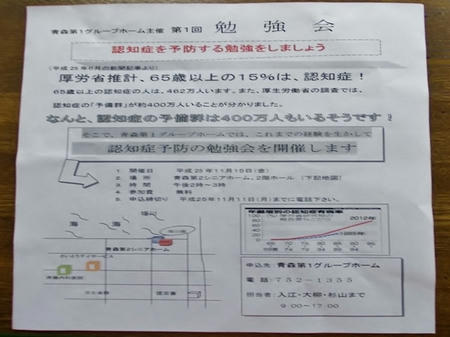 青森第1グループホーム主催 第1回 勉強会
認知症を予防する勉強をしましょう
(平成25年6月の新聞記事より)
厚労省推計、65歳以上の15%は、認知症!
65歳以上の認知症の人は、462万人います。また、厚生労働省の調査では、
認知症の「予備群」が約400万人いることが分かりました。
なんと、認知症の予備群は400万人もいるそうです!
そこで、青森第1グループホームでは、これまでの経験を生かして
認知症予防の勉強会を開催します
1. 開催日 平成25年11月15日(金)
2. 場所 青森第2シニアホーム、2階ホール (下記地図)
3. 時間 午後2時~3時
4. 参加費 無料
5. 申込締切り 平成25年11月11日(月)までに電話下さい。
海
海
青森第2シニアホーム
年齢層別の認知症有病率
2012年
申込先:青森第1グループホーム
電話:752-1355
担当者:入江・大柳・杉山まで
9:00~17:00